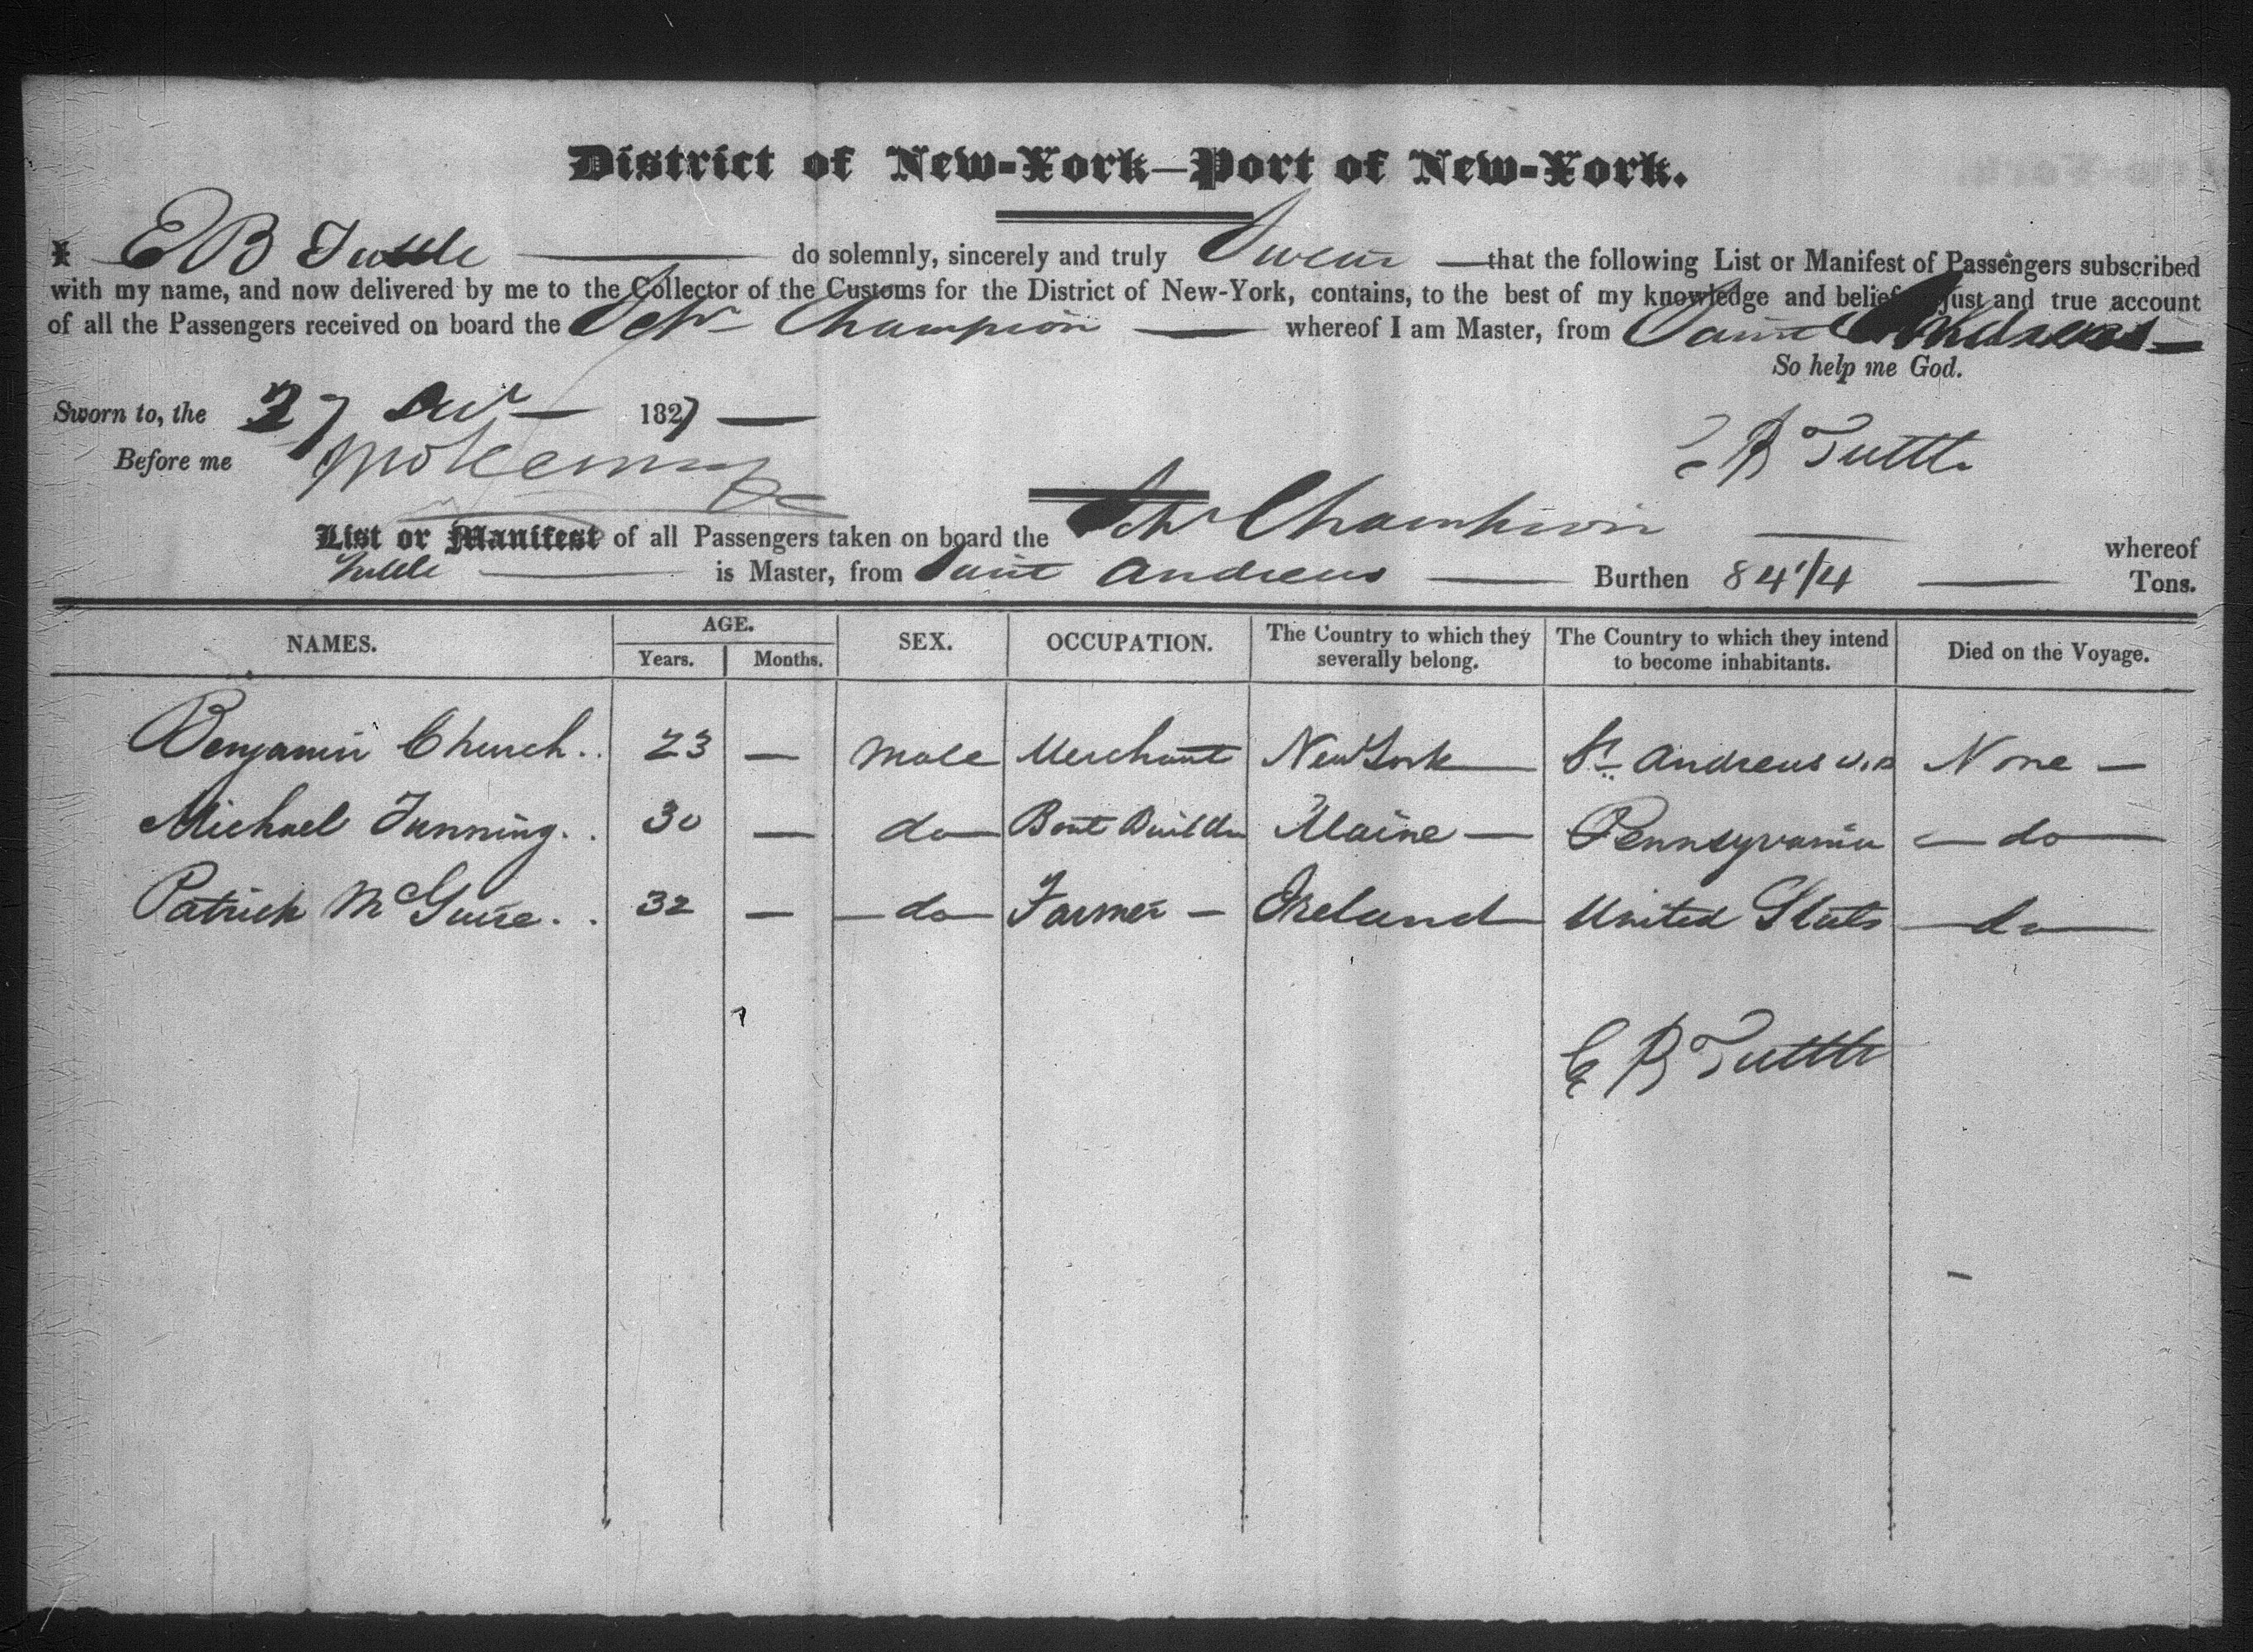 District of New-York—Port of New-York.
I E B Tuttle — do solemnly, sincerely and truly Swear — that the following List or Manifest of Passengers subscribed
with my name, and now delivered by me to the Collector of the Customs for the District of New-York, contains, to the best of my knowledge and belief, just and true account
of all the Passengers received on board the Schr Champion — whereof I am Master, from Saint Andrews —
So help me God.
Sworn to, the 27 — 1827 —
Before me
E B Tuttle
List or Manifest of all Passengers taken on board the Schr Champion — whereof
Tuttle — is Master, from Saint Andrews — Burthen 84 1/4 — Tons.
NAMES. AGE. Years. Months. SEX. OCCUPATION. The Country to which they severally belong. The Country to which they intend to become inhabitants. Died on the Voyage.
Benjamin Church.. 23 — Male Merchant New York — St Andrews N.B None —
Michael Funning.. 30 — do — Boat Builder Maine — Pennsyvania — do —
Patrick McGuire.. 32 — — do — Farmer — Ireland — United States — do —
E B Tuttle